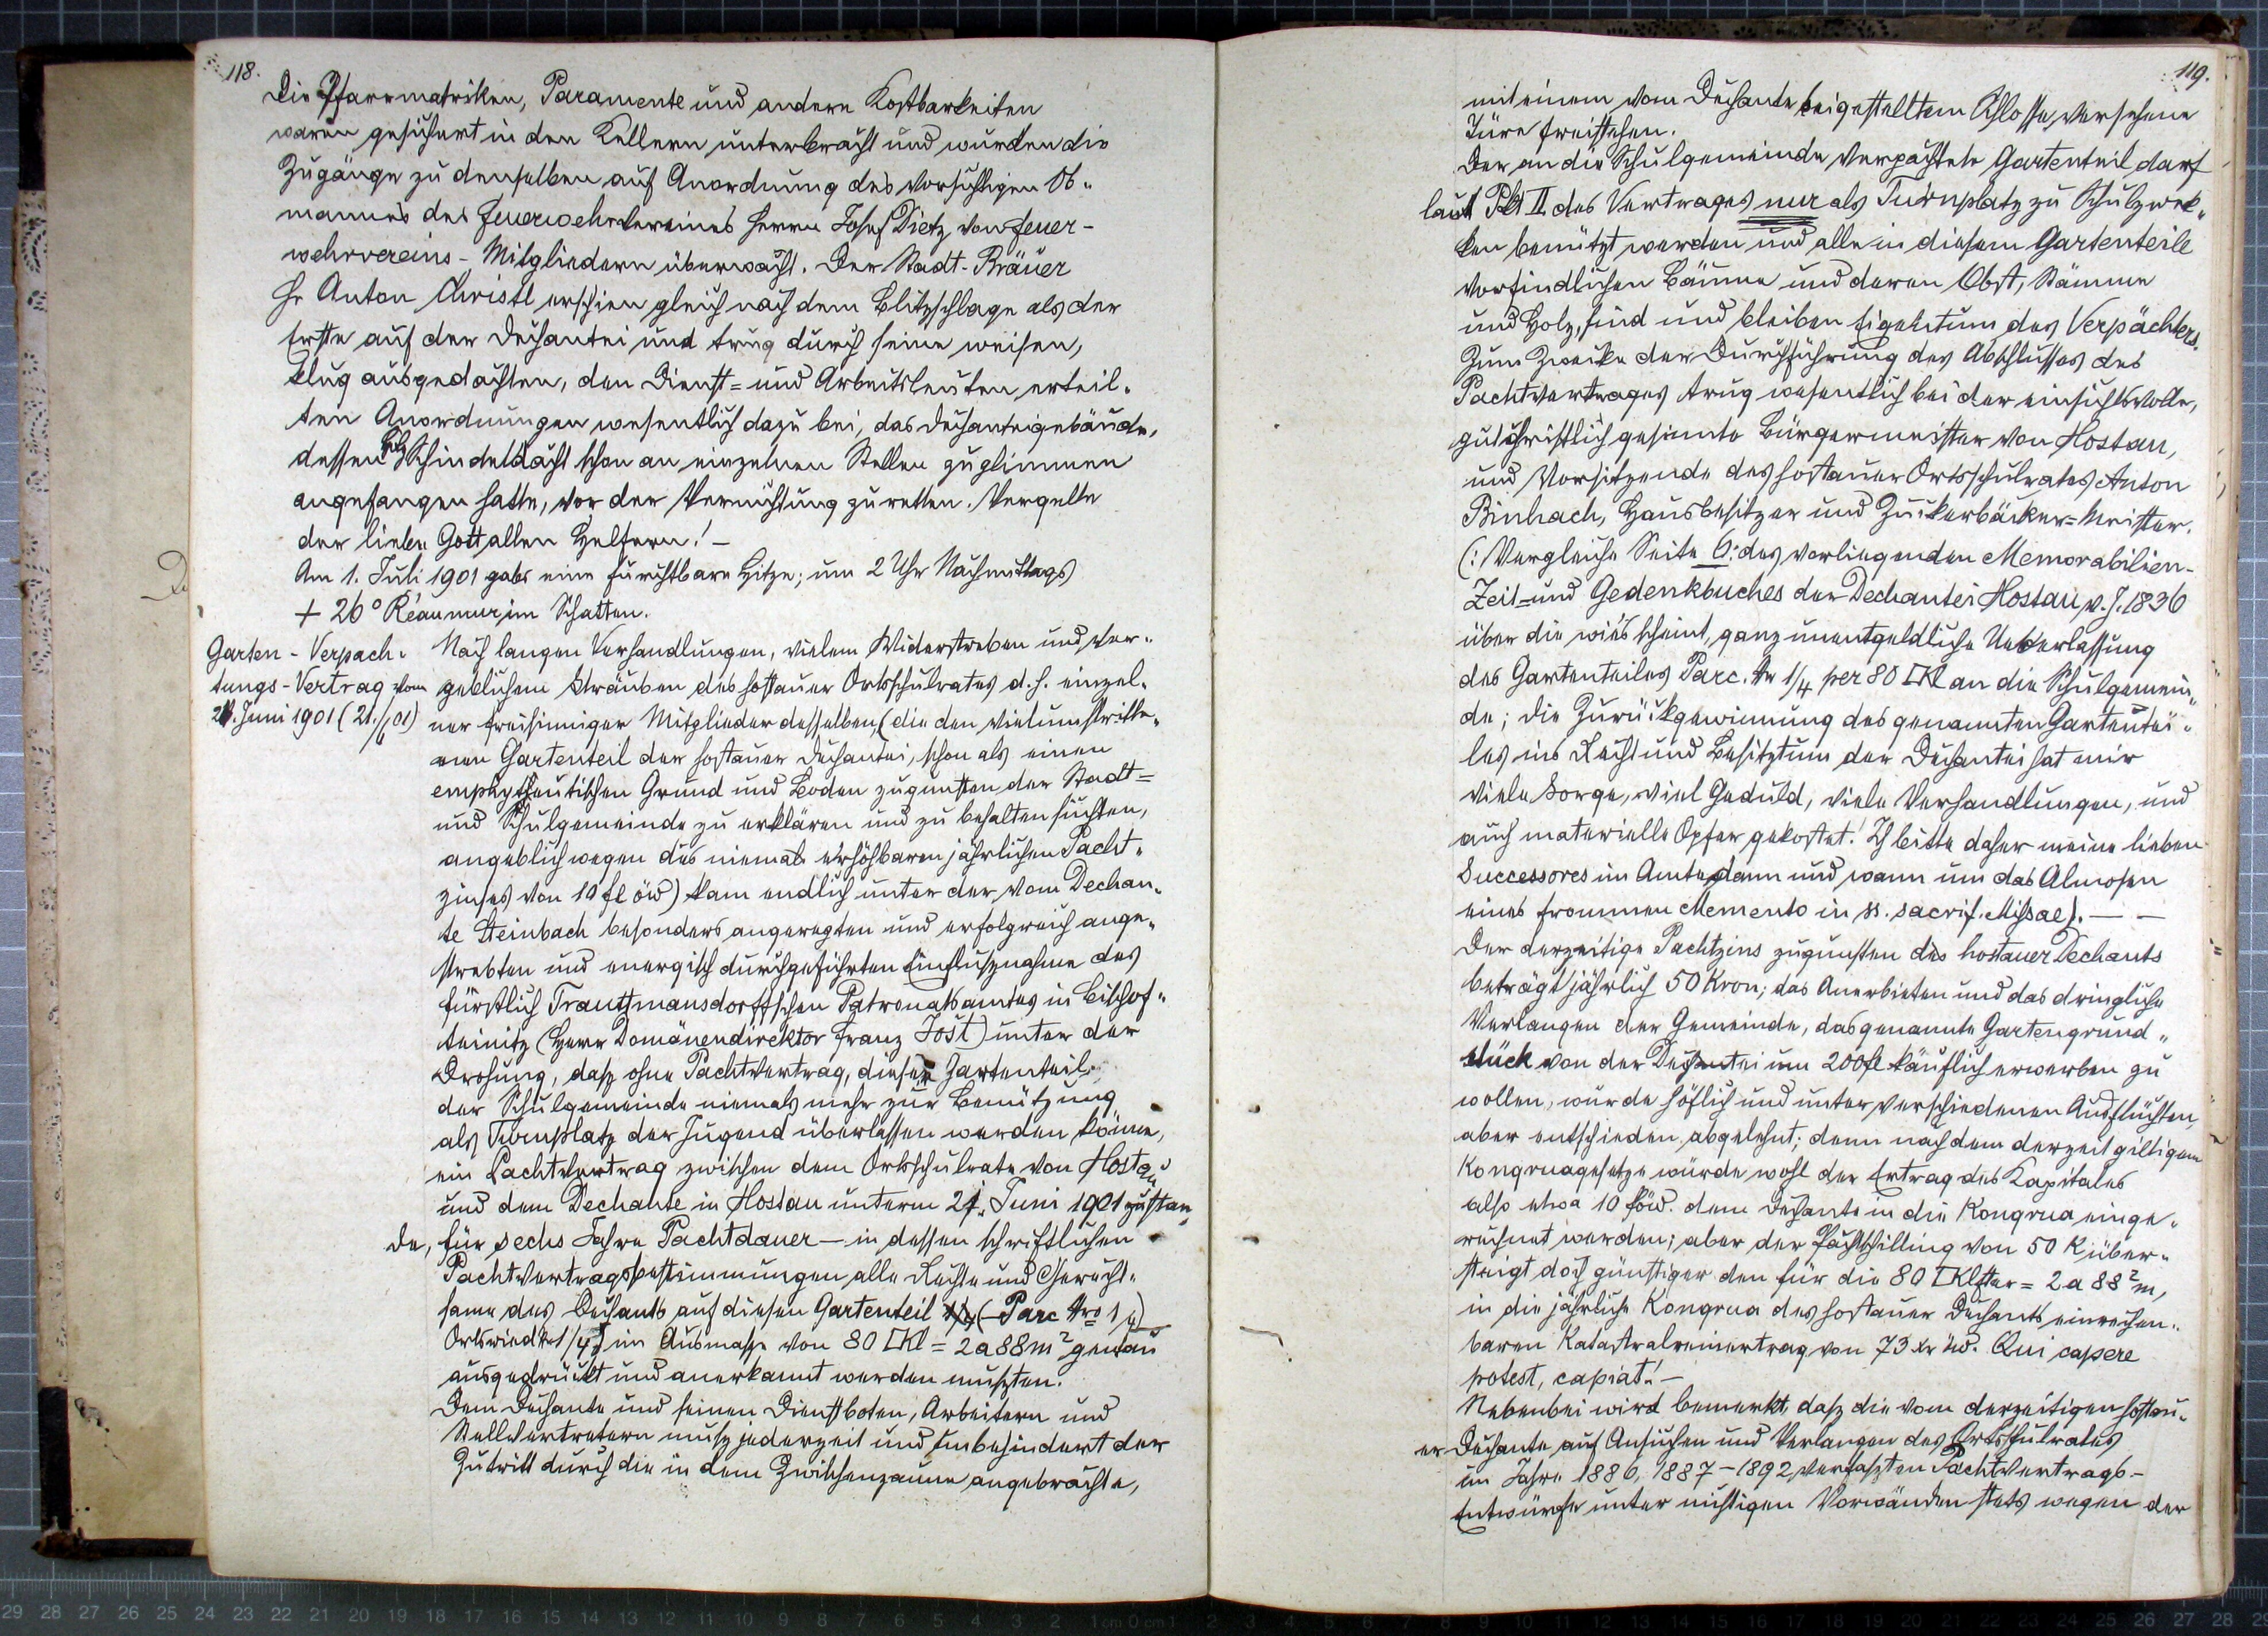 118.
Die Pfarrmatriken, Paramente und andere Kostbarkeiten
waren gesichert in den Kellern unterbracht und wurden die
Zugänge zu denselben auf Anordnung des vorsichtigen Ob-
mannes des Feuerwehrvereines Herrn Josef Dietz von Feuer-
wehrvereins-Mitgliedern überwacht. Der Stadt-Bräuer
Hr Anton Christl erschien gleich nach dem Blitzschlage als der
Erste auf der Dechantei und trug durch seine weisen,
klug ausgedachten, den Dienst- und Arbeitsleuten erteil-
ten Anordnungen wesentlich dazu bei, das Dechanteigebäude,
dessen Holz Schindeldach schon an einzelnen Stellen zu glimmen
angefangen hatte, vor der Vernichtung zu retten. Vergelte
der liebe Gott allen Helfern! —
Am 1. Juli 1901 gabs eine furchtbare Hitze; um 2 Uhr Nachmittags
+ 26° Réaumur im Schatten.
Garten-Verpach-
tungs-Vertrag vom
21. Juni 1901 (21./6 01)
Nach langen Verhandlungen, vielem Widerstreben und ver-
geblichem Sträuben des hostauer Ortsschulrates d. h. einzel-
ner freisinniger Mitglieder desselben, (die den vielumstritte-
nen Gartenteil der hostauer Dechantei, schon als einen
emphytheutischen Grund und Boden zugunsten der Stadt-
und Schulgemeinde zu erklären und zu behalten suchten,
angeblich wegen des niemals erhöhbaren jährlichen Pacht-
zinses von 10 fl öw) kam endlich unter der vom Dechan-
te Steinbach besonders angeregten und erfolgreich ange-
strebten und energisch durchgeführten Einflusznahme des
fürstlich Trauttmansdorffschen Patronatsamtes in Bischof-
teinitz (Herr Domänendirektor Franz Jost) unter der
Drohung, dasz ohne Pachtvertrag, dieser Gartenteil
der Schulgemeinde niemals mehr zur Benützung
als Turnplatz der Jugend überlassen werden könne,
ein Pachtvertrag zwischen dem Ortsschulrate von Hostau
und dem Dechante in Hostau unterm 21. Juni 1901 zustan-
de, für sechs Jahre Pachtdauer — in dessen schriftlichen
Pachtvertragsbestimmungen alle Rechte und Gerecht-
same des Dechants auf diesen Gartenteil (Parc Nro 1/4)
Ortsried Nr 1/4) im Ausmasze von 80 □Kl = 2a 88m² genau
ausgedrückt und anerkannt werden muszten.
Dem Dechante und seinen Dienstboten, Arbeitern und
Stellvertretern musz jederzeit und unbehindert der
Zutritt durch die in dem Zwischenzaune angebrachte,
119.
mit einem vom Dechante beigestelltem Schlosse, versehene
Türe freistehen.
Der an die Schulgemeinde verpachtete Gartenteil darf
laut Pkt II des Vertrages nur als Turnplatz zu Schulzwek-
ken benützt werden und alle in diesem Gartenteile
vorfindlichen Bäume und deren Obst, Stämme
und Holz, sind und bleiben Eigentum des Verpächters.
Zum Zwecke der Durchführung des Abschlusses des
Pachtvertrages trug wesentlich bei der einsichtsvolle,
gutchristlich gesinnte Bürgermeister von Hostau,
und Vorsitzende des hostauer Ortsschulrates Anton
Binhach, Hausbesitzer und Zuckerbäcker-Meister.
(: Vergleiche Seite 6: des vorliegenden Memorabilien-
Zeit- und Gedenkbuches der Dechantei Hostau v. J. 1836
über die wie's scheint, ganz unentgeldliche Ueberlassung
des Gartenteiles Parc. Nr 1/4 per 80 □Kl an die Schulgemein-
de; die Zurückgewinnung des genannten Gartentei-
les ins Recht und Besitztum der Dechantei hat mir
viele Sorge, viel Geduld, viele Verhandlungen, und
auch materielle Opfer gekostet! Ich bitte daher meine lieben
Successores im Amte, dann und wann um das Almosen
eines frommen Memento in ss. sacrif. Missae). — —
Der derzeitige Pachtzins zugunsten des hostauer Dechants
beträgt jährlich 50 Kron; das Anerbieten und das dringliche
Verlangen der Gemeinde, das genannte Gartengrund-
stück von der Dechantei um 200 fl käuflich erwerben zu
wollen, wurde höflich und unter verschiedenen Ausflüchten,
aber entschieden abgelehnt; denn nach dem derzeit giltigen
Kongruagesetze würde wohl der Ertrag des Kapitales
also etwa 10 föw. dem Dechante in die Kongrua einge-
rechnet werden; aber der Pachtschilling von 50 K über-
steigt doch günstiger den für die 80 □Klfter = 2a 88²m,
in die jährliche Kongrua des hostauer Dechants einrechen-
baren Katastralreinertrag von 73 kr öw. Qui capere
potest, capiat! —
Nebenbei wird bemerkt, dasz die vom derzeitigen hostau-
er Dechante auf Ansuchen und Verlangen des Ortsschulrates
im Jahre 1886, 1887-1892 verfaszten Pachtvertrags-
Entwürfe unter nichtigen Vorwänden stets wegen der